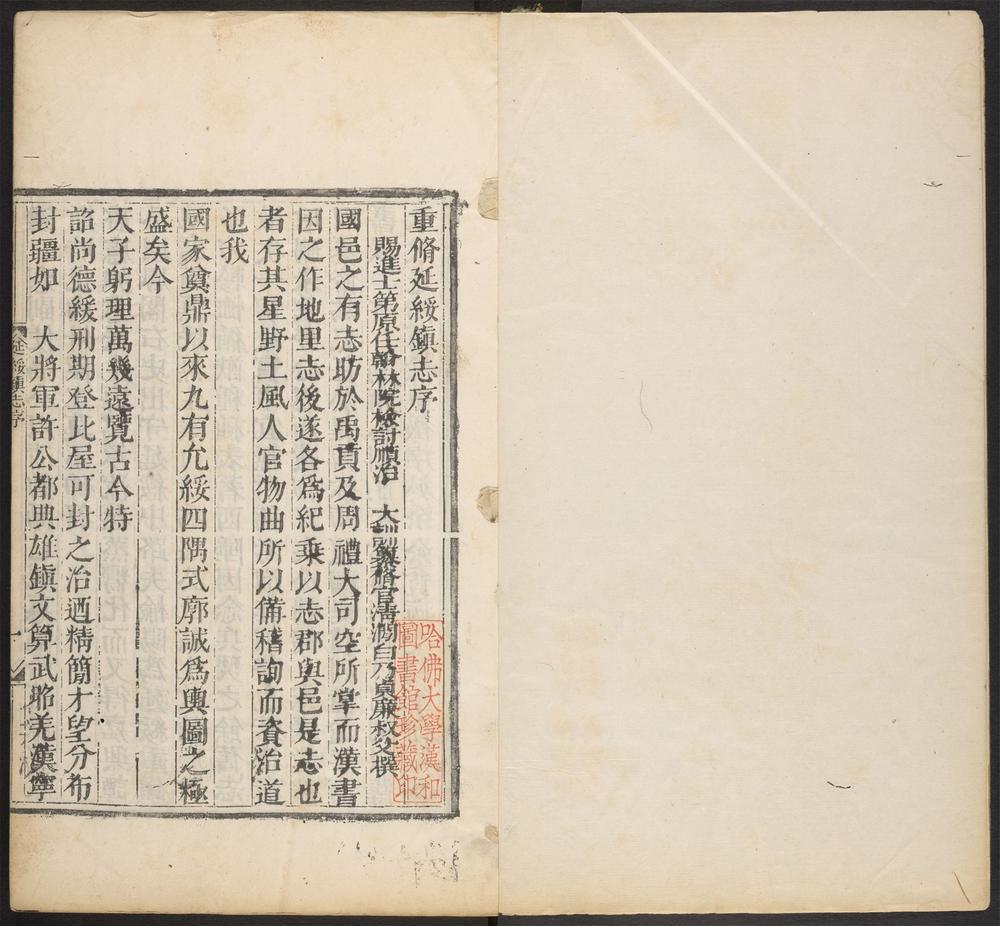 重脩延綏鎮志序
賜進士第原任翰林院檢討順治 大訓纂脩官清澗白乃貞廉叔父撰
國邑之有志昉於禹貢及周禮大司空所掌而漢書
因之作地里志後遂各爲紀乘以志郡與邑是志也
者存其星野土風人官物曲所以備稽詢而資治道
也我
國家奠鼎以來九有允綏四隅式廓誠爲輿圖之極
盛矣今
天子躬理萬幾遠覽古今特
詔尚德緩刑期登比屋可封之治迺精簡才望分布
封疆如 大將軍許公都典雄鎮文算武郷羌漢寧
延綏鎮志序
一
哈佛大學漢和
圖書館珍藏印